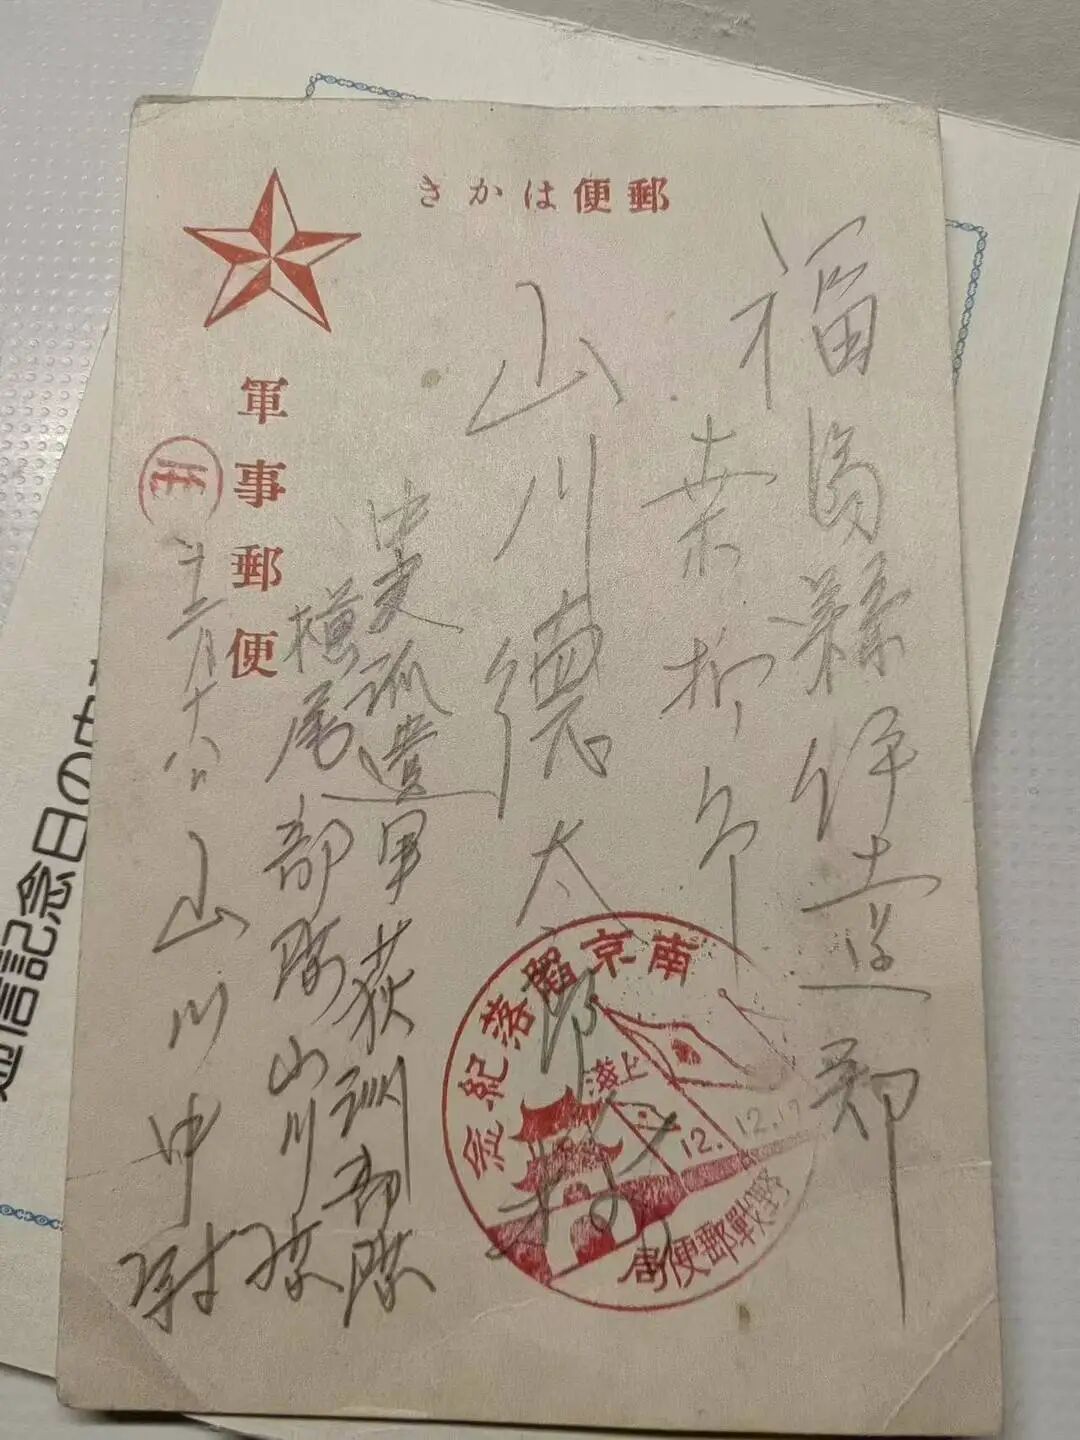 郵便はかき
軍事郵便
福島縣伊達郡
山川德太郎
中支派遣軍荻洲部隊
部隊山川隊
十二月十八日
山川中尉
南京陥落紀念
上海
12.12.17
野戰郵便局
信記念日の